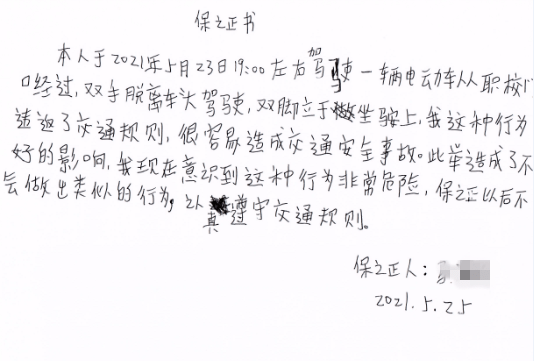 保证书
本人于2021年5月23日19:00左右驾驶一辆电动车从职校门
口经过，双手脱离车头驾驶，双脚立于坐鞍上，我这种行为
违返了交通规则，很容易造成交通安全事故。此举造成了不
好的影响，我现在意识到这种行为非常危险，保证以后不
会做出类似的行为，认
真遵守交通规则。
保证人：
2021.5.25